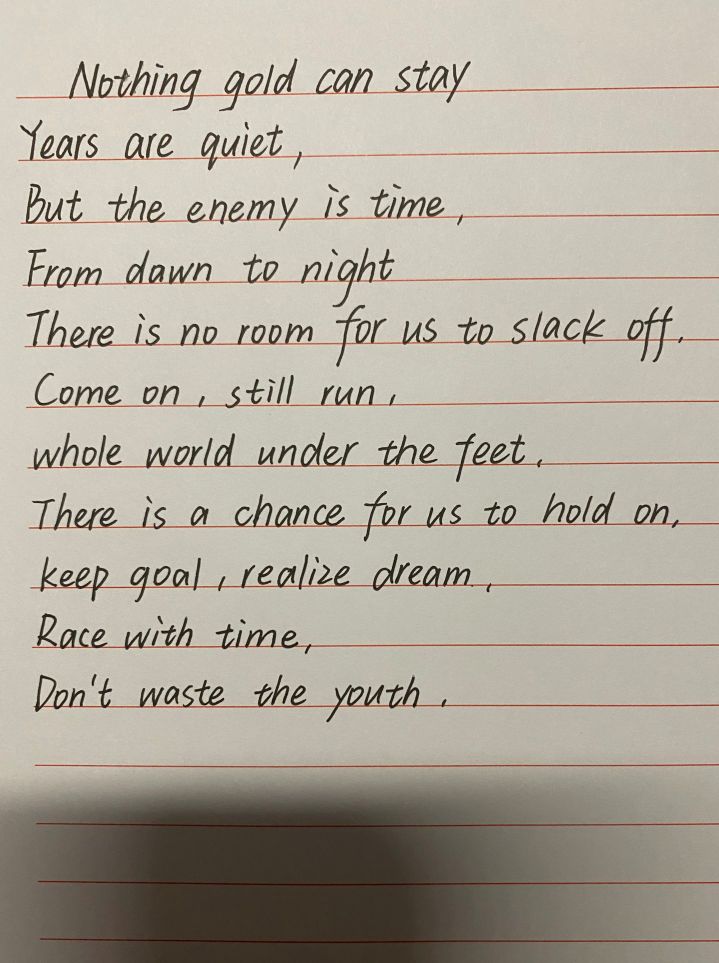 Nothing gold can stay
Years are quiet,
But the enemy is time,
From dawn to night
There is no room for us to slack off.
Come on, still run,
whole world under the feet.
There is a chance for us to hold on,
keep goal, realize dream,
Race with time,
Don't waste the youth.